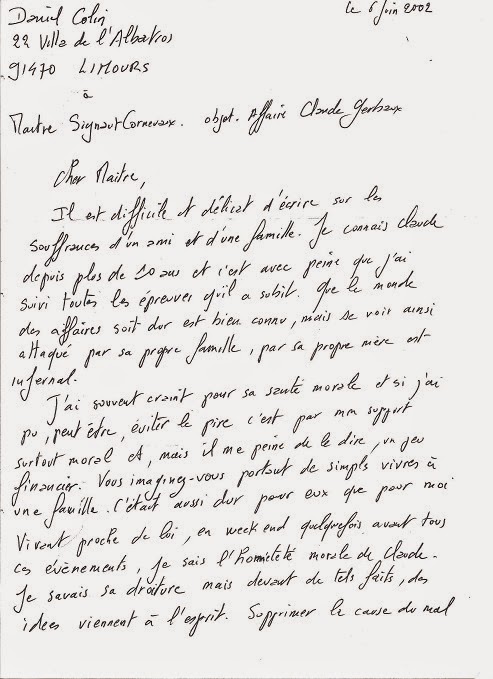 Daniel Colin
le 6 Juin 2002
22 Villa de l'Albatros
91470 LIMOURS
à
Maitre Signaut Cornevaux. objet. Affaire Claude Gerbaux
Cher Maitre,
Il est difficile et délicat d'écrire sur les
souffrances d'un ami et d'une famille. Je connais Claude
depuis plus de 10 ans et c'est avec peine que j'ai
suivi toutes les épreuves qu'il a subit. Que le monde
des affaires soit dur est bien connu, mais se voir ainsi
attaqué par sa propre famille, par sa propre mère est
infernal.
J'ai souvent craint pour sa santé morale et si j'ai
pu, peut être, éviter le pire c'est par mon support
surtout moral et, mais il me peine de le dire, un peu
financier. Vous imaginez-vous portant de simples vivres à
une famille. C'était aussi dur pour eux que pour moi
Vivant proche de lui, en week end quelquefois avant tous
ces évènements, je sais l'honnêteté morale de Claude.
Je savais sa droiture mais devant de tels faits, des
idées viennent à l'esprit. Supprimer la cause du mal